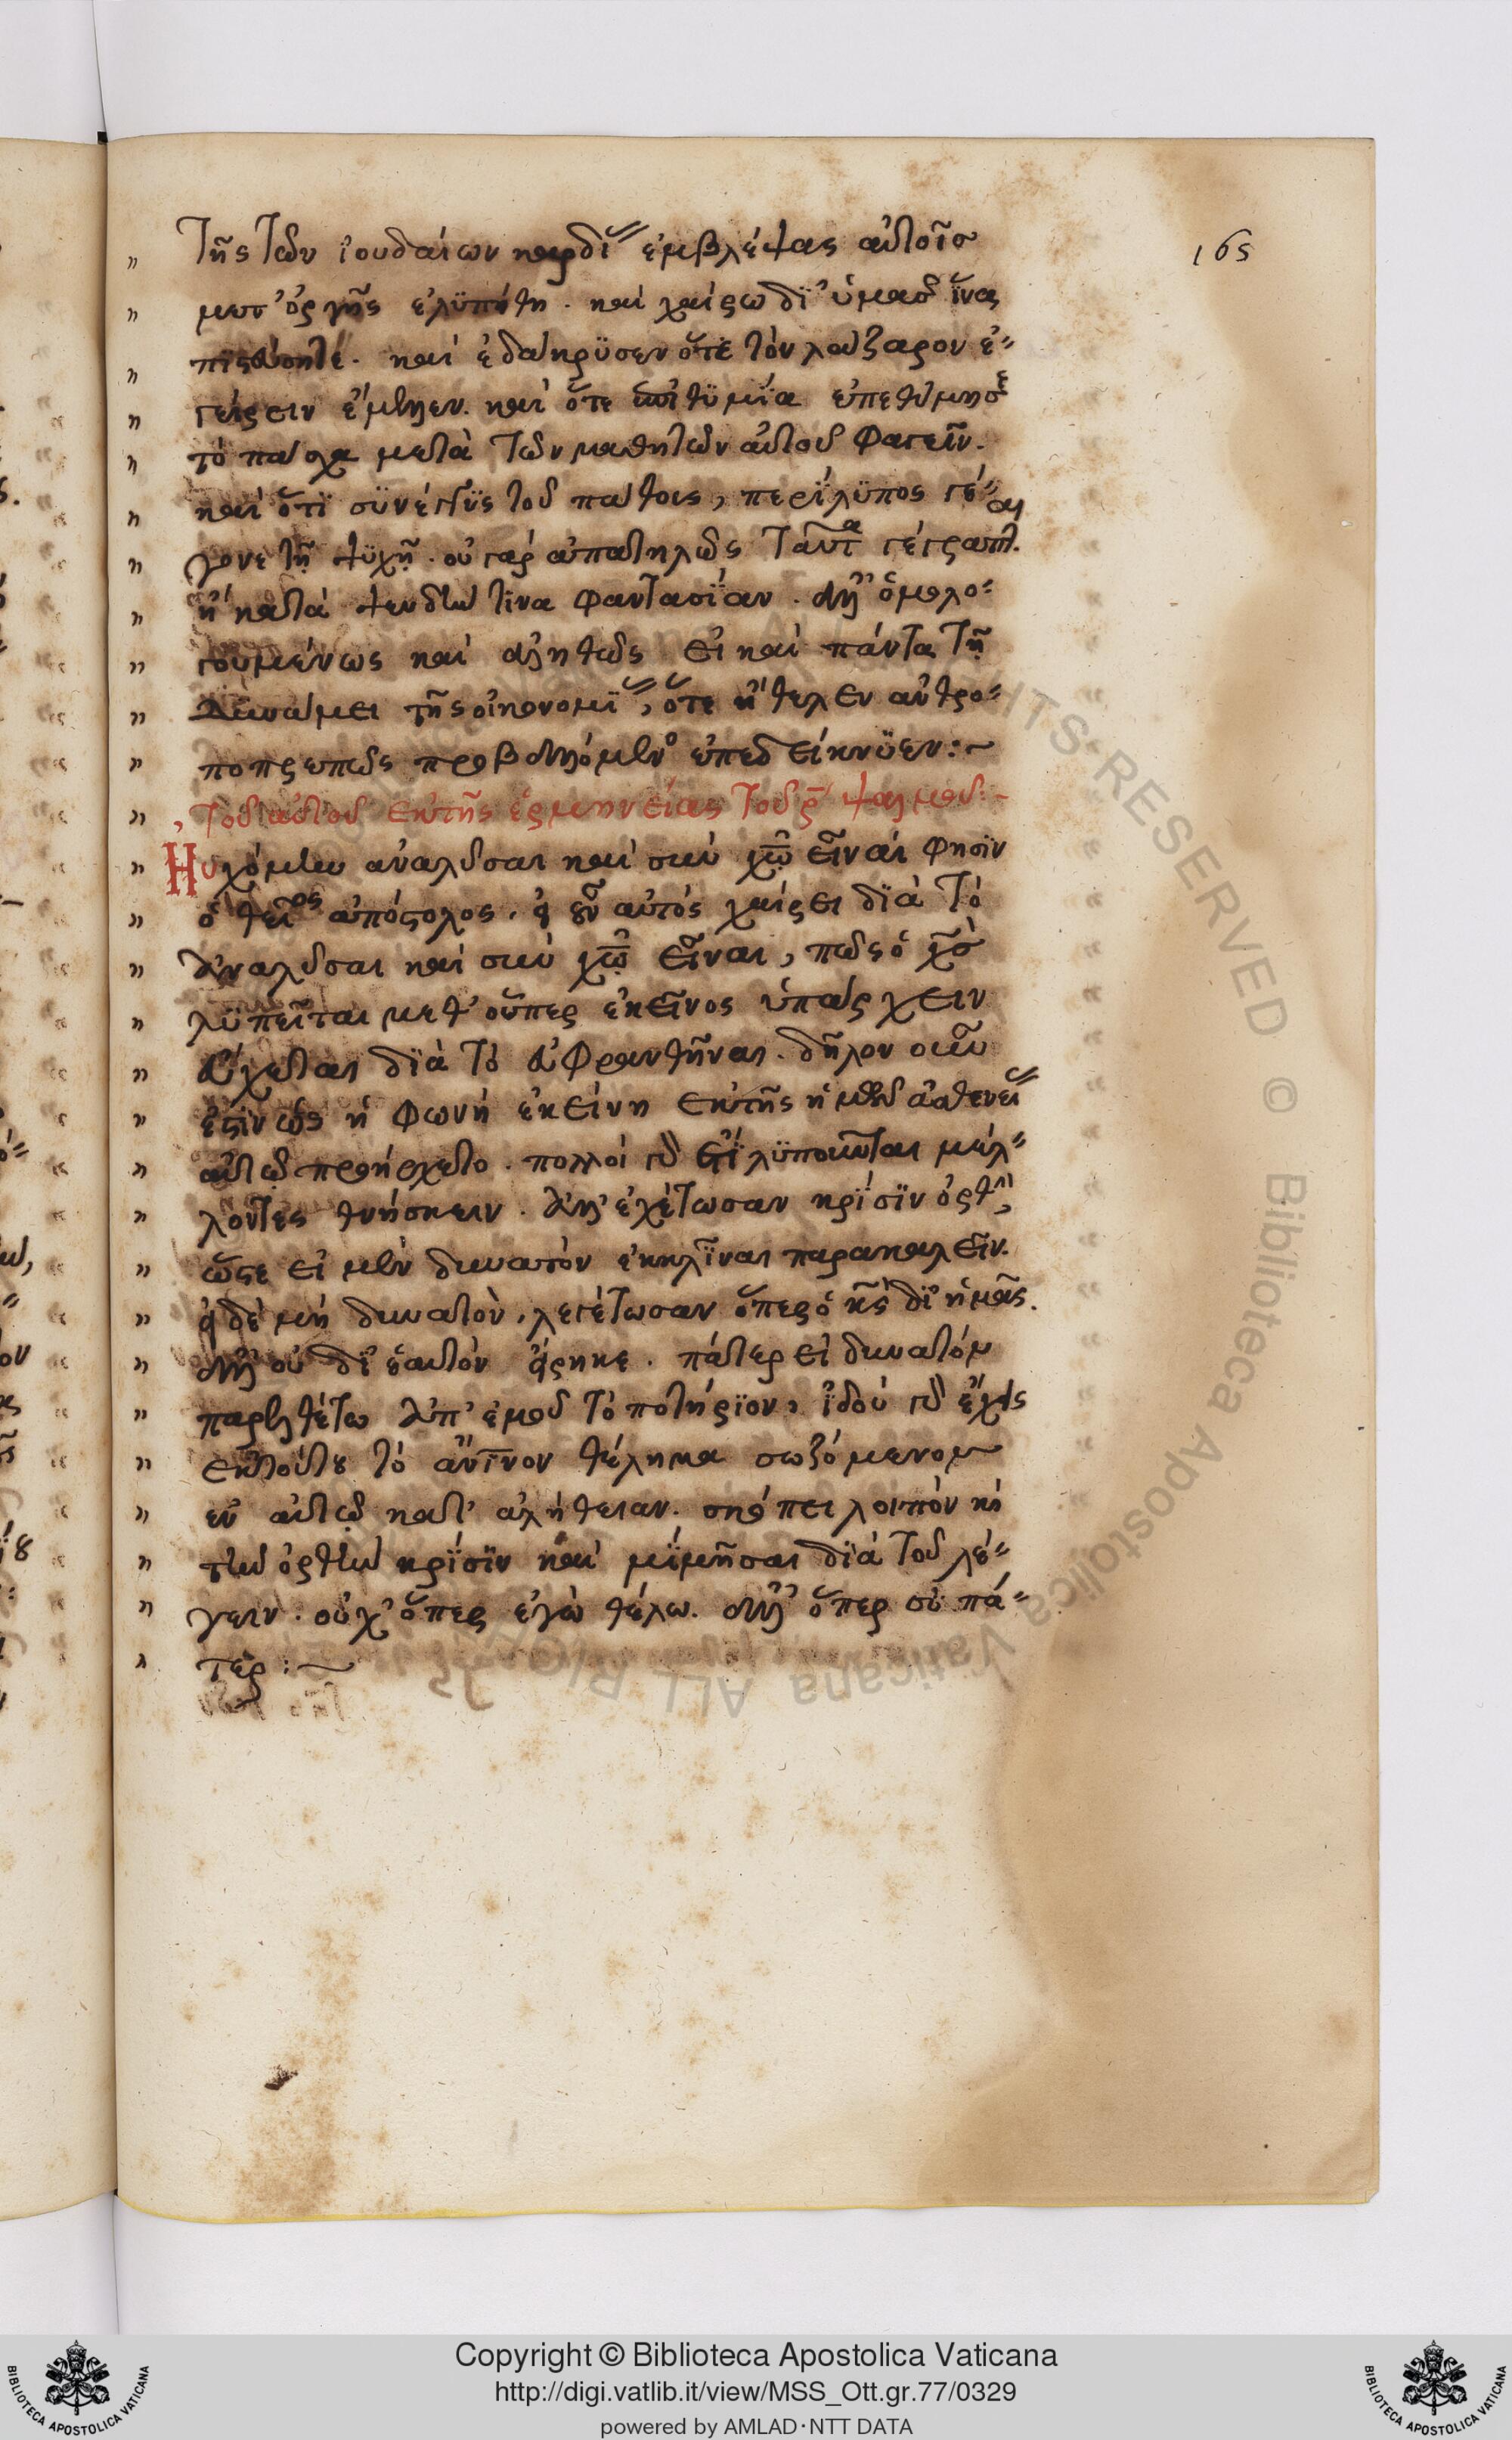 165
τῆς τῶν ἰουδαίων καρδί ἐμβλέψας αὐτοῖσ
μετ' ὀργῆς ἐλϋπήθη. καὶ χαίρω δϊ' ὑμασ ἵνα
πϊστεύσητε. καὶ ἐδάκρϋσεν ὅτε τὸν λάζαρον ἐ-
γείρειν ἔμελλεν. καὶ ὅτε ἐπιθϋμϊα ἐπεθύμησε
τὸ πάσχα μετὰ τῶν μαθητῶν αὐτοῦ φαγεῖν.
καὶ ὅτϊ σϋνέγγϋς τοῦ πάθους, περίλϋπος γέ-
γονε τῇ ψϋχῇ. οὐ γὰρ ἀπατηλῶς ταῦτα γέγραπται
ἢ κατὰ ψευδῆ τϊνα φαντασΐαν. ἀλλ' ὁμολο-
γουμένως καὶ ἀληθῶς εἰ καὶ πάντα τῇ
δυνάμει τῆς οἰκονομϊ, ὅτε ἤθελεν ἀνθρο-
ποπρεπῶς προβαλλόμενο ἐπεδείκνϋεν:~
Τοῦ αὐτοῦ ἐκ τῆς ἑρμηνείας τοῦ ϟ ψαλμοῦ:~
Ηὐχόμην ἀναλῦσαι καὶ σὺν χω εἶναι φησϊν
ὁ θεῖος ἀπόστολος. εἰ οὖν αὐτὸς χαίρει δϊὰ τὸ
ἀναλῦσαι καὶ σὺν χω εἶναι, πῶς ὁ χσ
λϋπεῖται μεθ' οὗπερ ἐκεῖνος ὑπάρχειν
εὔχεται δϊὰ τὸ εὐφρανθῆναι. δῆλον οὖν
ἐστὶν ὡς ἡ φωνὴ ἐκείνη ἐκ τῆς ἡμῶν ἀσθενεί
αὐτῷ προήρχετο. πολλοὶ γὰρ ἔτϊ λϋποῦνται μέλ-
λοντες θνήσκειν. ἀλλ' ἐχέτωσαν κρίσϊν ὀρθὴν,
ὥστε εἰ μὲν δυνατὸν ἐκκλῖναι παρακαλεῖν.
εἰ δὲ μὴ δυνατὸν, λεγέτωσαν ὅπερ ὁ κς δϊ' ἡμᾶς.
ἀλλ' οὐ δϊ' ἑαυτὸν εἴρηκε. πάτερ εἰ δυνατὸν
παρελθέτω ἀπ' ἐμοῦ τὸ ποτήρϊον, ἰδοὺ γὰρ ἔχεις
ἐκ τούτου τὸ ἀνινον θέλημα σωζόμενον
ἐν αὐτῷ κατ' ἀλήθειαν. σκόπει λοιπὸν καὶ
τὴν ὀρθὴν κρΐσϊν καὶ μϊμῆσαι δϊὰ τοῦ λέ-
γειν. οὐχ' ὅπερ ἐγὼ θέλω. ἀλλ' ὅπερ σὺ πά-
τερ:~
Copyright © Biblioteca Apostolica Vaticana
http://digi.vatlib.it/view/MSS_Ott.gr.77/0329
powered by AMLAD·NTT DATA